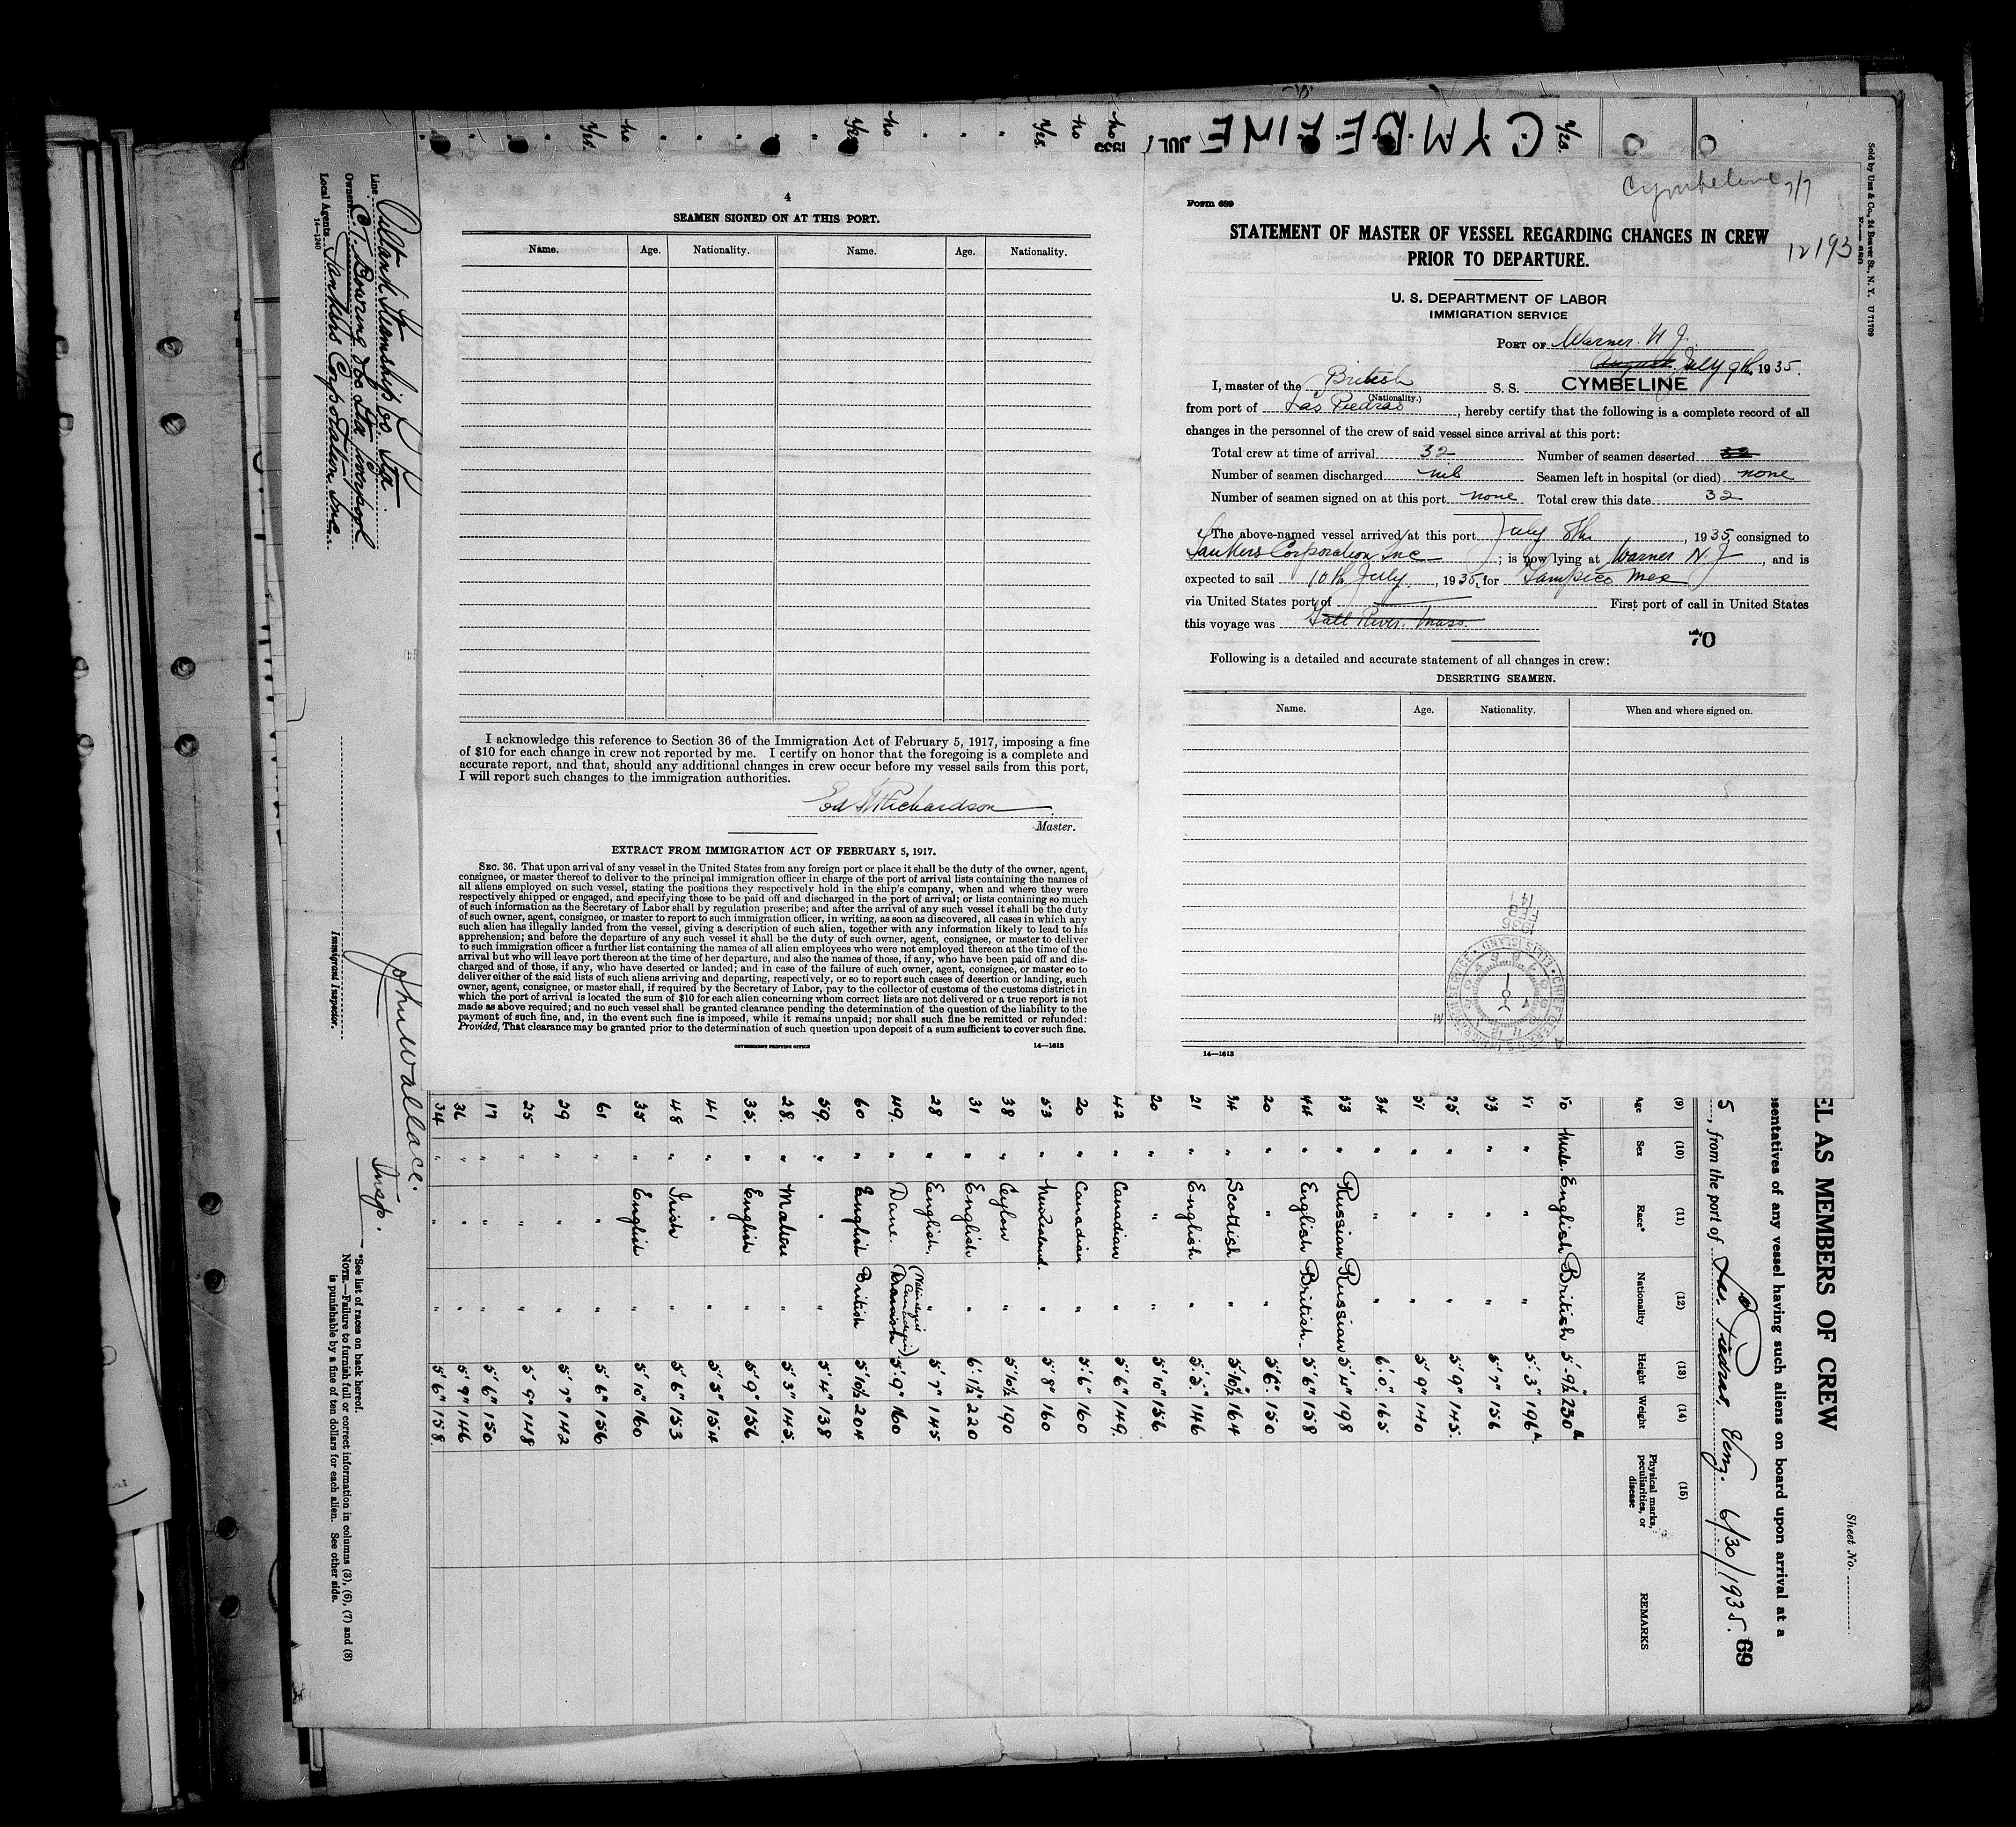 CYMBELINE JUL 1935
Cymbeline 7/7
12193
Sold by Unz & Co., 24 Beaver St., N. Y. U 71709
4
SEAMEN SIGNED ON AT THIS PORT.
Name. Age. Nationality. Name. Age. Nationality.
I acknowledge this reference to Section 36 of the Immigration Act of February 5, 1917, imposing a fine
of $10 for each change in crew not reported by me. I certify on honor that the foregoing is a complete and
accurate report, and that, should any additional changes in crew occur before my vessel sails from this port,
I will report such changes to the immigration authorities.
Richardson
Master.
EXTRACT FROM IMMIGRATION ACT OF FEBRUARY 5, 1917.
SEC. 36. That upon arrival of any vessel in the United States from any foreign port or place it shall be the duty of the owner, agent,
consignee, or master thereof to deliver to the principal immigration officer in charge of the port of arrival lists containing the names of
all aliens employed on such vessel, stating the positions they respectively hold in the ship's company, when and where they were
respectively shipped or engaged, and specifying those to be paid off and discharged in the port of arrival; or lists containing so much
of such information as the Secretary of Labor shall by regulation prescribe; and after the arrival of any such vessel it shall be the duty
of such owner, agent, consignee, or master to report to such immigration officer, in writing, as soon as discovered, all cases in which any
such alien has illegally landed from the vessel, giving a description of such alien, together with any information likely to lead to his
apprehension; and before the departure of any such vessel it shall be the duty of such owner, agent, consignee, or master to deliver
to such immigration officer a further list containing the names of all alien employees who were not employed thereon at the time of the
arrival but who will leave port thereon at the time of her departure, and also the names of those, if any, who have been paid off and dis-
charged and of those, if any, who have deserted or landed; and in case of the failure of such owner, agent, consignee, or master so to
deliver either of the said lists of such aliens arriving and departing, respectively, or so to report such cases of desertion or landing, such
owner, agent, consignee, or master shall, if required by the Secretary of Labor, pay to the collector of customs of the customs district in
which the port of arrival is located the sum of $10 for each alien concerning whom correct lists are not delivered or a true report is not
made as above required; and no such vessel shall be granted clearance pending the determination of the question of the liability to the
payment of such fine, and, in the event such fine is imposed, while it remains unpaid; nor shall such fine be remitted or refunded:
Provided, That clearance may be granted prior to the determination of such question upon deposit of a sum sufficient to cover such fine.
GOVERNMENT PRINTING OFFICE 14—1613
Form 689
STATEMENT OF MASTER OF VESSEL REGARDING CHANGES IN CREW
PRIOR TO DEPARTURE.
U. S. DEPARTMENT OF LABOR
IMMIGRATION SERVICE
PORT OF Warner. N J.
August July 9th, 1935.
I, master of the British S. S. CYMBELINE
(Nationality.)
from port of Las Piedras, hereby certify that the following is a complete record of all
changes in the personnel of the crew of said vessel since arrival at this port:
Total crew at time of arrival 32 Number of seamen deserted
Number of seamen discharged nil Seamen left in hospital (or died) none
Number of seamen signed on at this port none Total crew this date 32
The above-named vessel arrived at this port July 8th, 1935, consigned to
Tankers Corporation Inc; is now lying at Warner N. J, and is
expected to sail 10th July, 1935, for Tampico Mex
via United States port of First port of call in United States
this voyage was Fall River. Mass.
70
Following is a detailed and accurate statement of all changes in crew:
DESERTING SEAMEN.
Name. Age. Nationality. When and where signed on.
1936
FEB
14
14—1613
EL AS MEMBERS OF CREW
Sheet No.
esentatives of any vessel having such aliens on board upon arrival at a
5, from the port of Las Piedras, Venz. 6/30/1935. 69
(9) (10) (11) (12) (13) (14) (15)
Age Sex Race* Nationality Height Weight Physical marks, peculiarities, or disease REMARKS
50 Male. English British 5'-9½" 230
51 " " " 5'-3" 196
53 " " " 5'-7" 156
25 " " " 5'-9" 145.
51 " " " 5'-9" 140
34 " " " 6'-0" 165
53 " Russian Russian 5'-4" 198
44 " English British 5'-6" 158
20 " " " 5'6" 150
34 " Scottish " 5'-10½ 164
21 " English " 5'-5" 146
20 " " " 5'-10" 156
42 " Canadian " 5'-6" 149.
20 " Canadian " 5'-6" 160
53 " New Zealand. " 5'-8" 160
38 " Ceylon " 5'-10½ 190
31 " English " 6'-1½" 220
28 " English, " 5'-7" 145
49. " Dane. Danish 5'-9" 160
60 " English British 5'10½ 204
59. " " " 5'4" 138
28. " Maltese " 5'3" 145.
35. " English " 5'9" 156
41 " " " 5'5" 154
48 " Irish " 5'6" 153
35 " English " 5'10" 160
61 " " " 5'6" 156
29 " " " 5'7" 142
25 " " " 5'9" 148
17 " " " 5'6" 150
36 " " " 5'9" 146
34 " " " 5'6" 158.
Line Steamship Co. Ltd.
Owners C. T. Bowring & Co Ltd Liverpool
Local Agents Tankers Corporation, Inc.
14—1240
John Wallace. Insp.
Immigrant Inspector.
*See list of races on back hereof.
NOTE.—Failure to furnish full or correct information in columns (3), (6), (7) and (8)
is punishable by a fine of ten dollars for each alien. See other side.